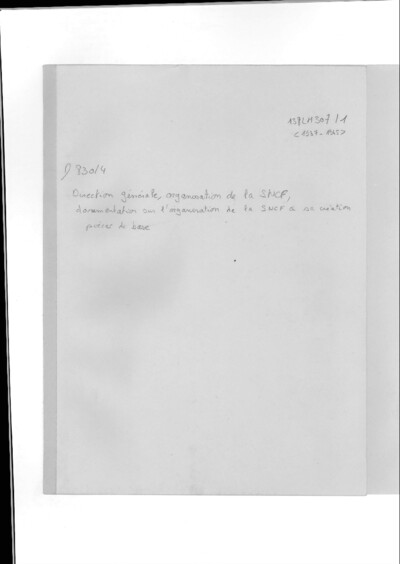 D 830/4
Direction générale, organisation de la SNCF,
documentation sur l'organisation de la SNCF à sa création
pièces de base